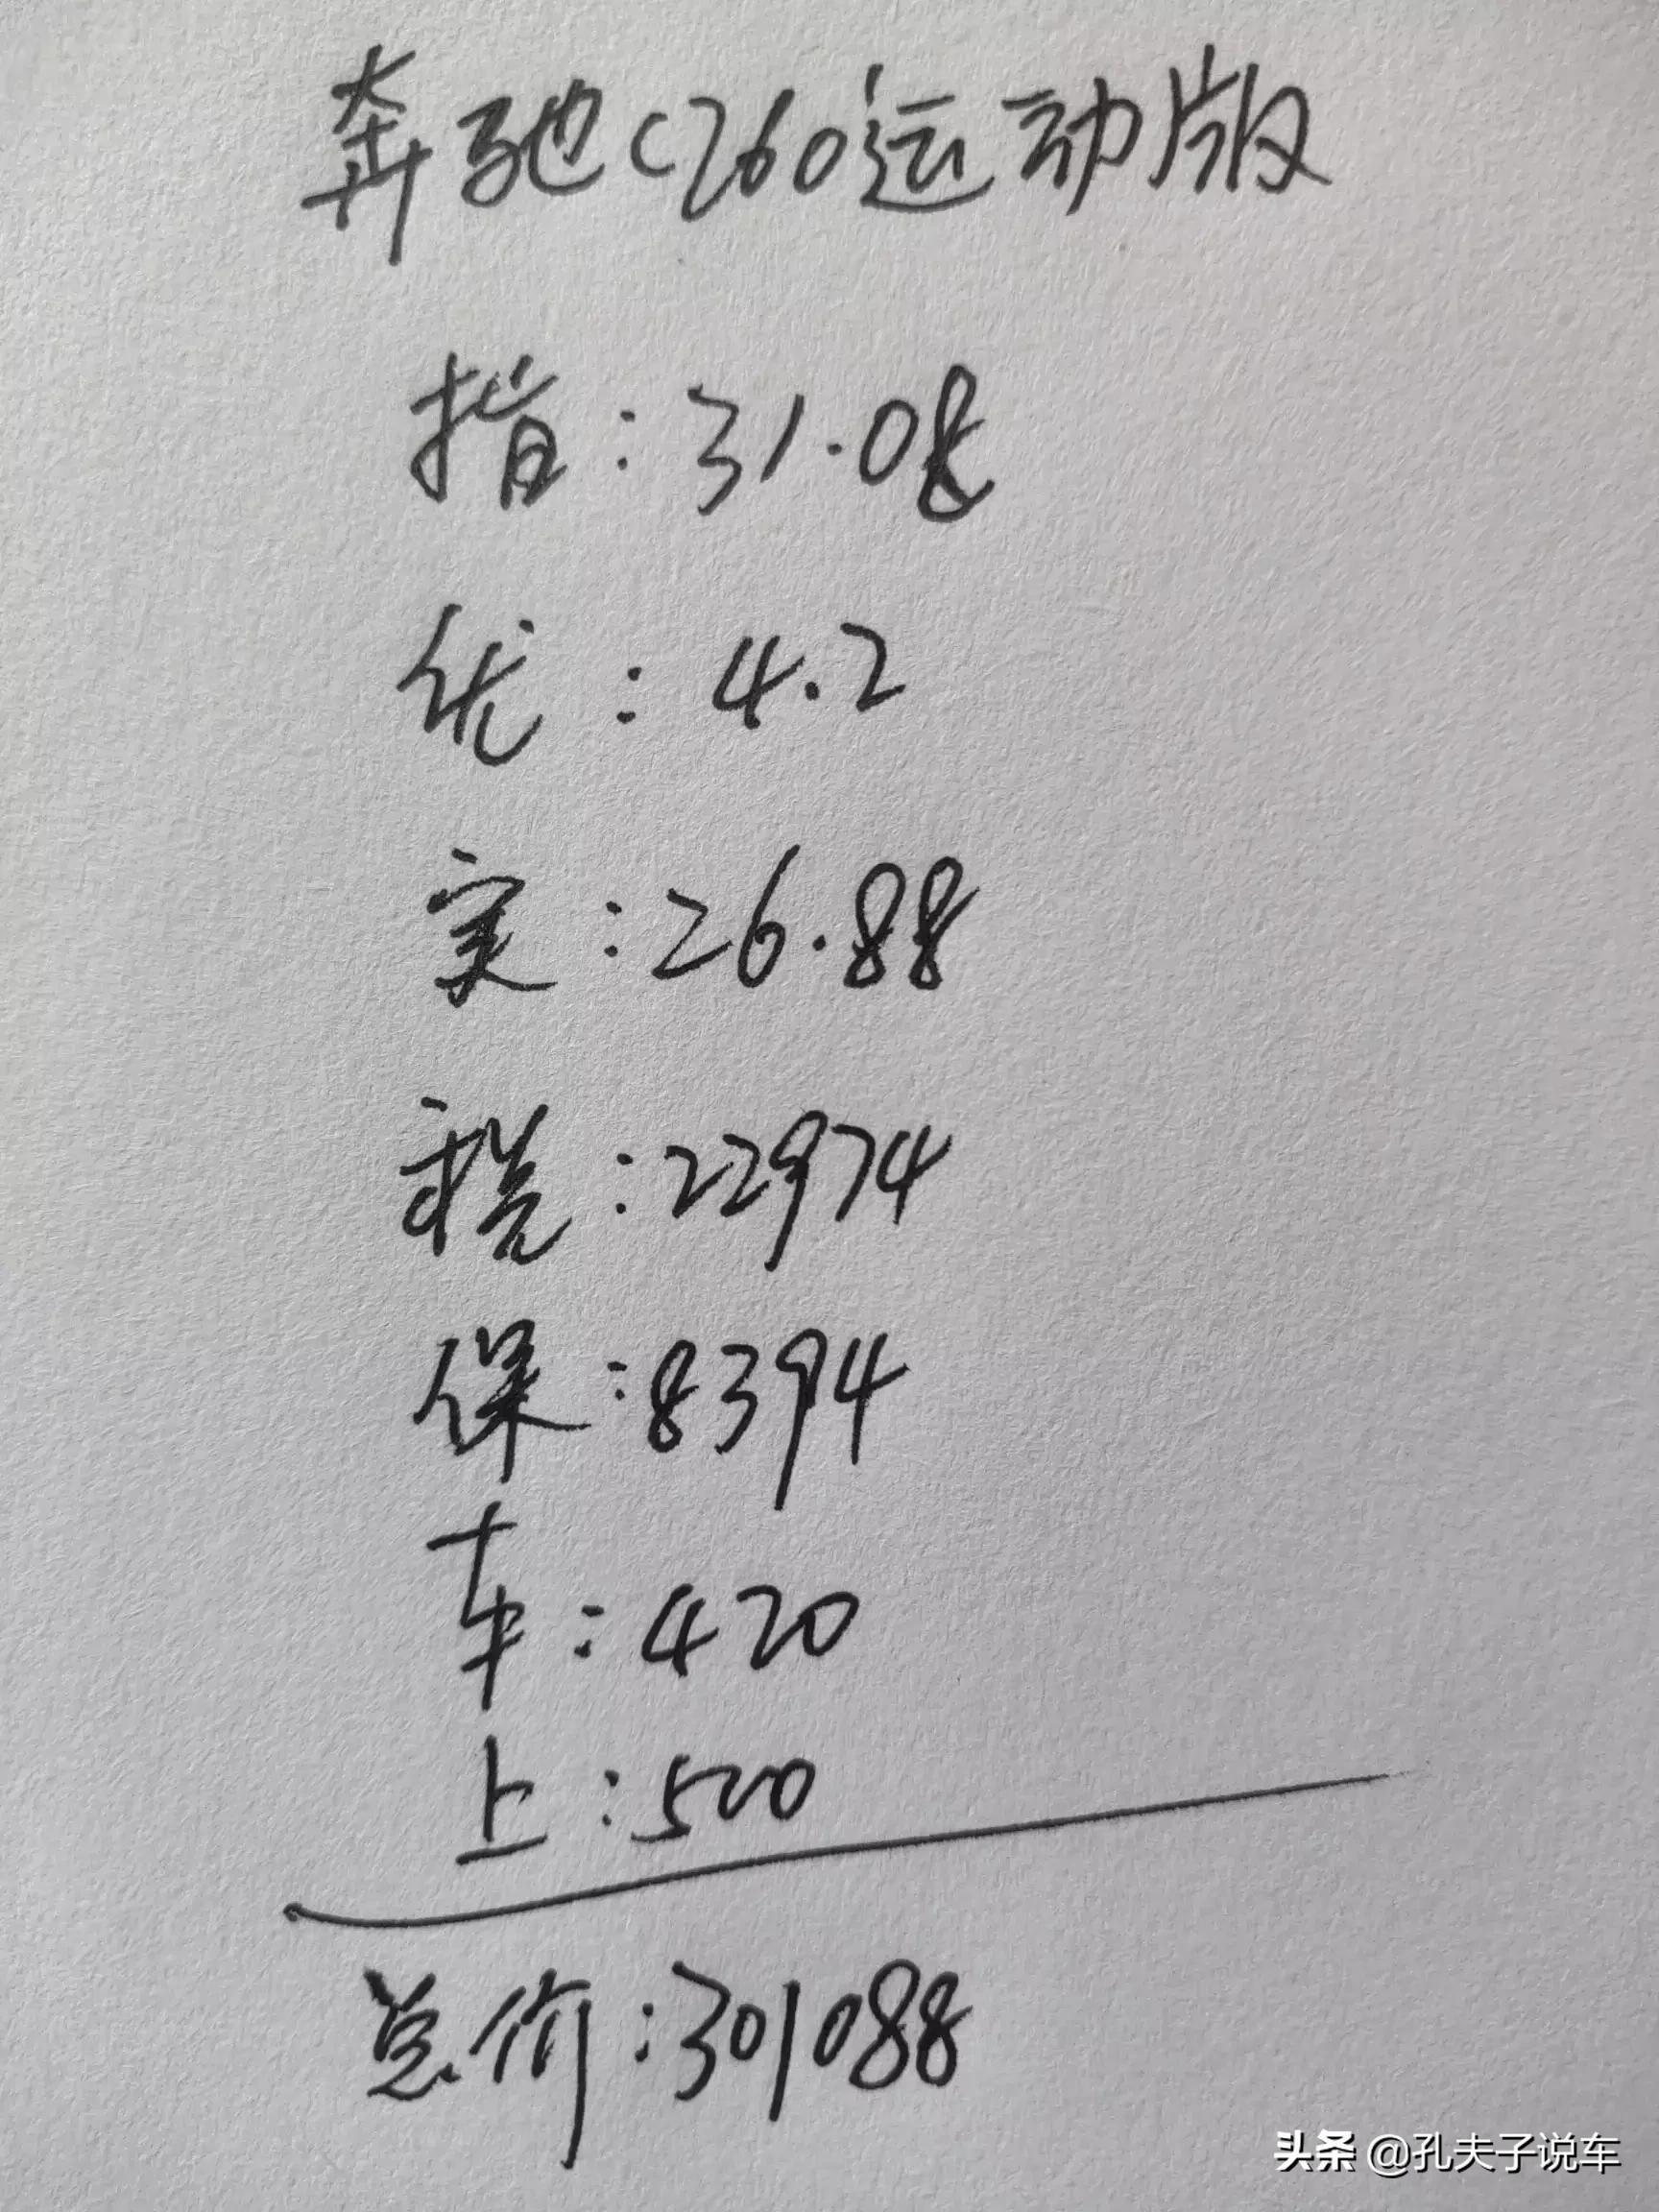 奔驰C260运动版
指:31.08
优:4.2
实:26.88
税:22974
保:8394
车:420
上:500
总价:301088
头条 @孔夫子说车